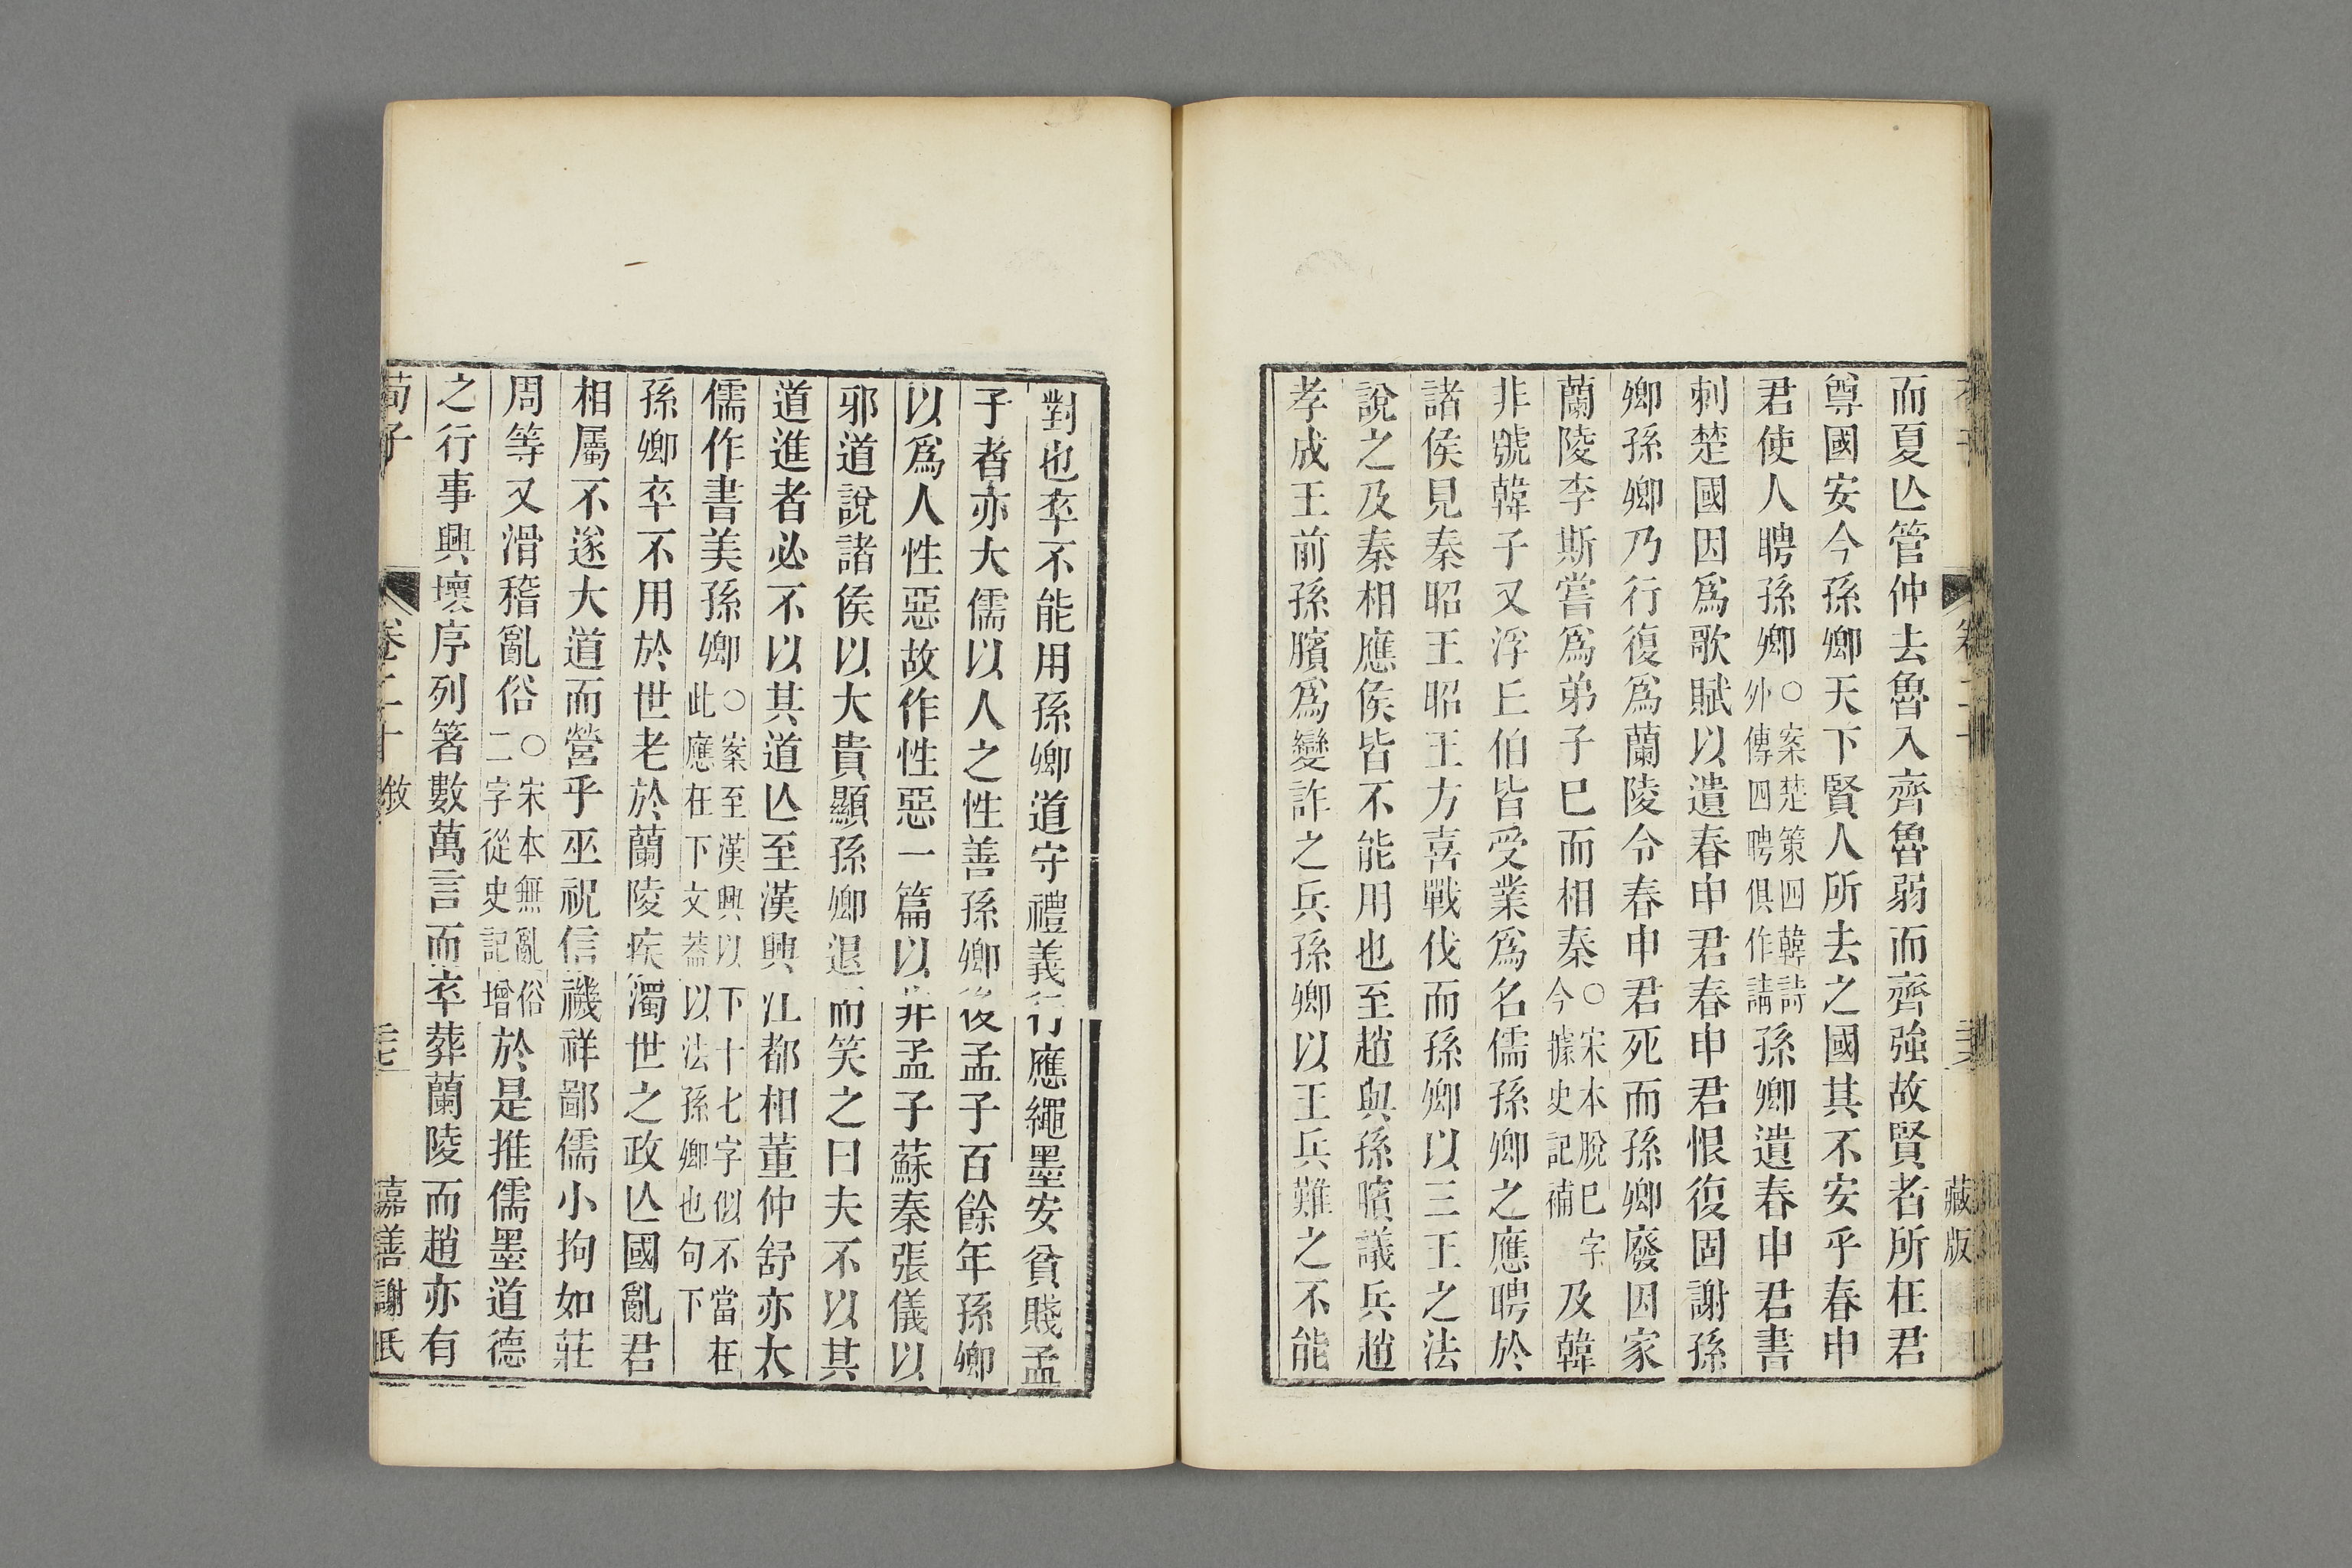 藏版
而夏亾管仲去魯入齊魯弱而齊強故賢者所在君
尊國安今孫卿天下賢人所去之國其不安乎春申
君使人聘孫卿○案楚策四韓詩外傳四聘俱作請孫卿遺春申君書
刺楚國因爲歌賦以遺春申君春申君恨復固謝孫
卿孫卿乃行復爲蘭陵令春申君死而孫卿廢因家
蘭陵李斯嘗爲弟子已而相秦○宋本脫已字今據史記補及韓
非號韓子又浮丘伯皆受業爲名儒孫卿之應聘於
諸侯見秦昭王昭王方喜戰伐而孫卿以三王之法
說之及秦相應侯皆不能用也至趙與孫臏議兵趙
孝成王前孫臏爲變詐之兵孫卿以王兵難之不能
對也卒不能用孫卿道守禮義行應繩墨安貧賤孟
子者亦大儒以人之性善孫卿後孟子百餘年孫卿
以爲人性惡故作性惡一篇以非孟子蘇秦張儀以
邪道說諸侯以大貴顯孫卿退而笑之曰夫不以其
道進者必不以其道亾至漢興江都相董仲舒亦大
儒作書美孫卿○案至漢興以下十七字似不當在此應在下文葢以法孫卿也句下
孫卿卒不用於世老於蘭陵疾濁世之政亾國亂君
相屬不遂大道而營乎巫祝信禨祥鄙儒小拘如莊
周等又滑稽亂俗○宋本無亂俗二字從史記增於是推儒墨道德
之行事興壞序列箸數萬言而卒葬蘭陵而趙亦有
荀子 卷二十 敘 三七 嘉善謝氏